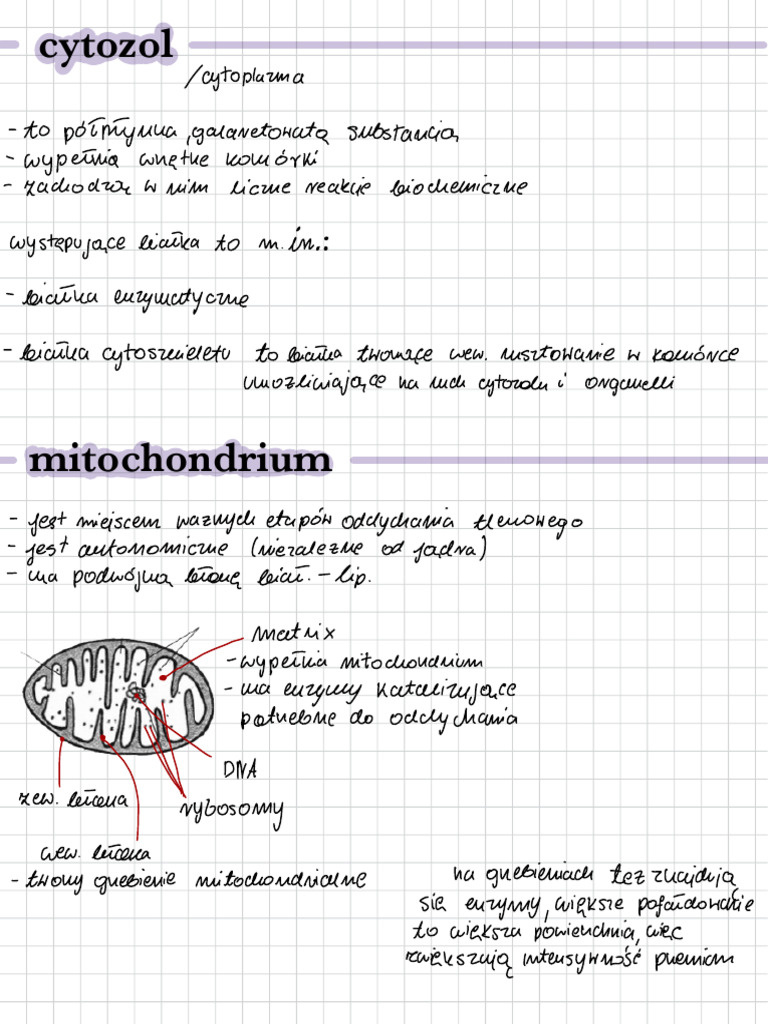 cytozol
/cytoplazma
- to półpłynna, galaretowata substancja
- wypełnia wnętrze komórki
- zachodzą w nim liczne reakcje biochemiczne
występujące białka to m.in.:
- białka enzymatyczne
- białka cytoszkieletu to białka tworzące wew. rusztowanie w komórce
umożliwiające na ruch cytozolu i organelli
mitochondrium
- jest miejscem ważnych etapów oddychania tlenowego
- jest autonomiczne (niezależne od jądra)
- ma podwójną błonę biał. - lip.
matrix
- wypełnia mitochondrium
- ma enzymy katalizujące
potrzebne do oddychania
DNA
zew. błona
rybosomy
wew. błona
- tworzy grzebienie mitochondrialne
na grzebieniach też znajdują
się enzymy, większe pofałdowanie
to większa powierzchnia, więc
zwiększają intensywność przemian